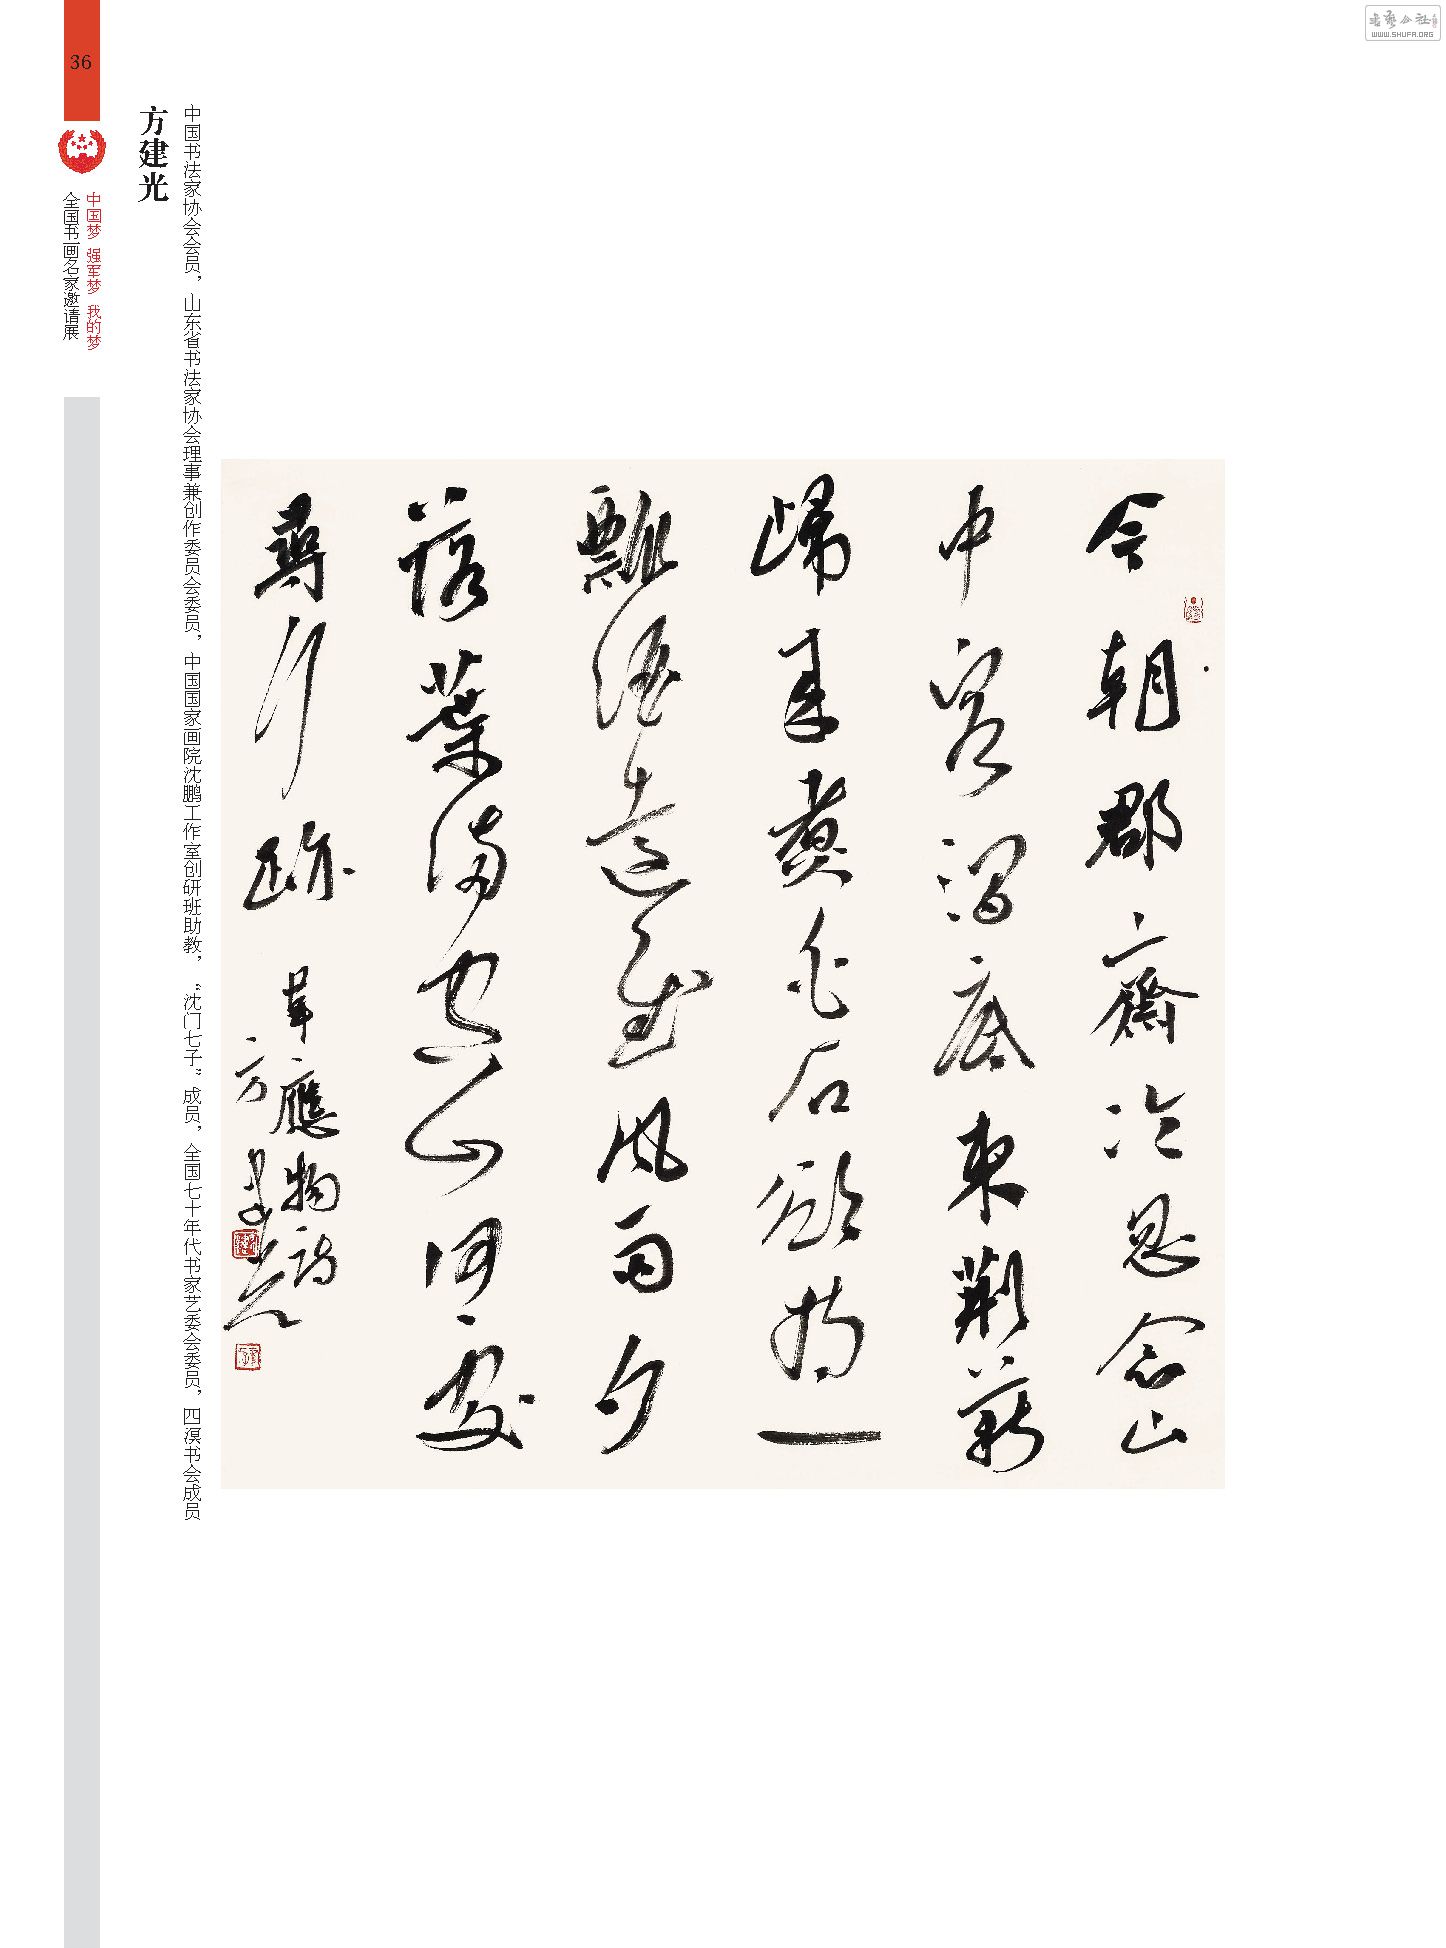 36
中国梦 强军梦 我的梦
全国书画名家邀请展
方建光
中国书法家协会会员，山东省书法家协会理事兼创作委员会委员，中国国家画院沈鹏工作室创研班助教，“沈门七子”成员，全国七十年代书家艺委会委员，四溟书会成员
今朝郡齋冷思念山
中客澗底束荆薪
歸来煑白石欲持一
瓢酒遠慰風雨夕
落葉滿空山何處
尋行跡
韋應物詩
方建光
书艺公社
WWW.SHUFA.ORG